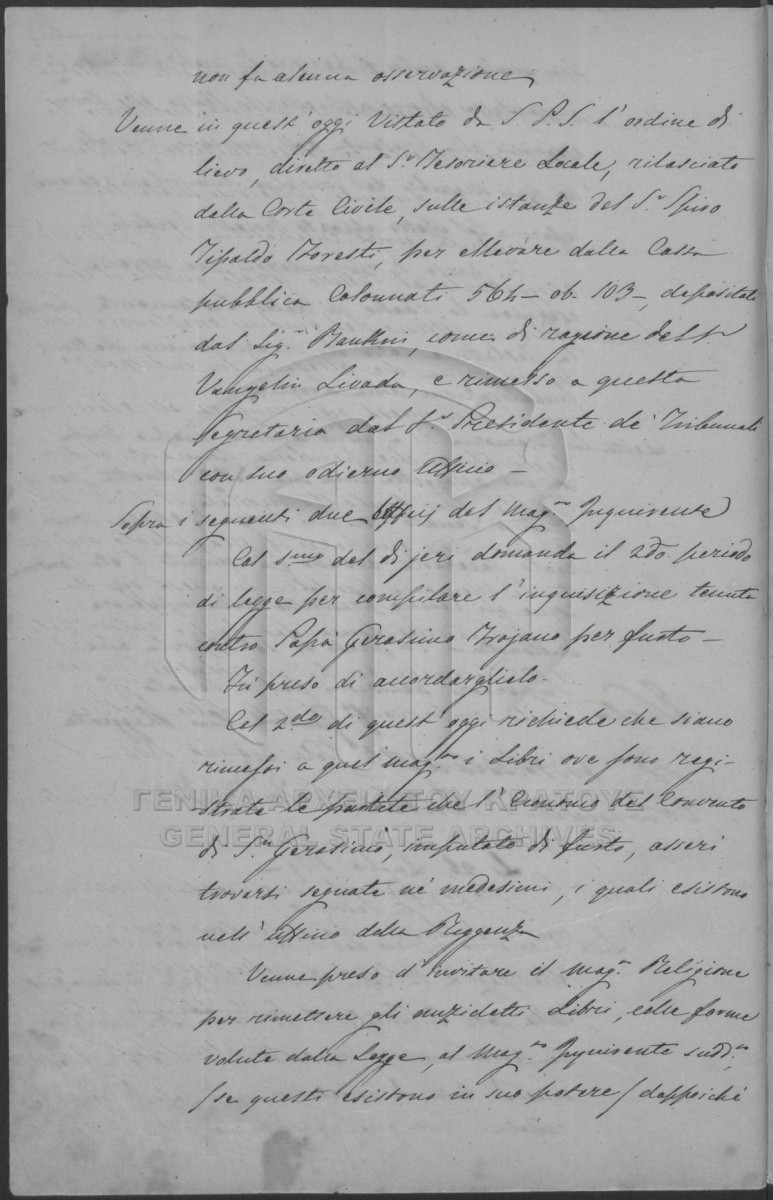 non fa alcuna osservazione
Venne in quest' oggi Vistato da S. P. S. l'ordine di
lievo, diretto al Sr. Tesoriere Locale, rilasciato
dalla Corte Civile, sulle istanze del Sr. Spiro
Tipaldo Foresti, per ellevare dalla Cassa
pubblica Colonnati 564 - ob. 103 -, depositati
dal Sigr. come di ragione del Sr
Vangelin Livada, e rimesso a questa
Segretaria dal Sr. Presidente de' Tribunali
con suo odierno Ufficio -
Sopra i seguenti due Ufficj del Magto. Inquirente
Col 1mo del di jeri domanda il 2do. periodo
di legge per compilare l'inquisizione tenuta
contro Papà Gerasimo Trojano per furto -
Fù preso di accordarglielo.
Col 2do di quest' oggi richiede che siano
rimessi a quel Magto. i Libri ove sono regi-
strate le partite che l'Economo del Convento
di Sn. Gerasimo, imputato di furto, asserì
trovarsi segnate ne' medesimi, i quali esistono
nell' Ufficio della Reggenza
Venne preso d'invitare il Magto. Religione
per rimettere gli anzidetti Libri, colle forme
volute dalla Legge, al Magto. Inquirente sudd.to
(se questi esistono in suo potere) dappoichè
ΓΕΝΙΚΑ ΑΡΧΕΙΑ ΤΟΥ ΚΡΑΤΟΥΣ
GENERAL STATE ARCHIVES